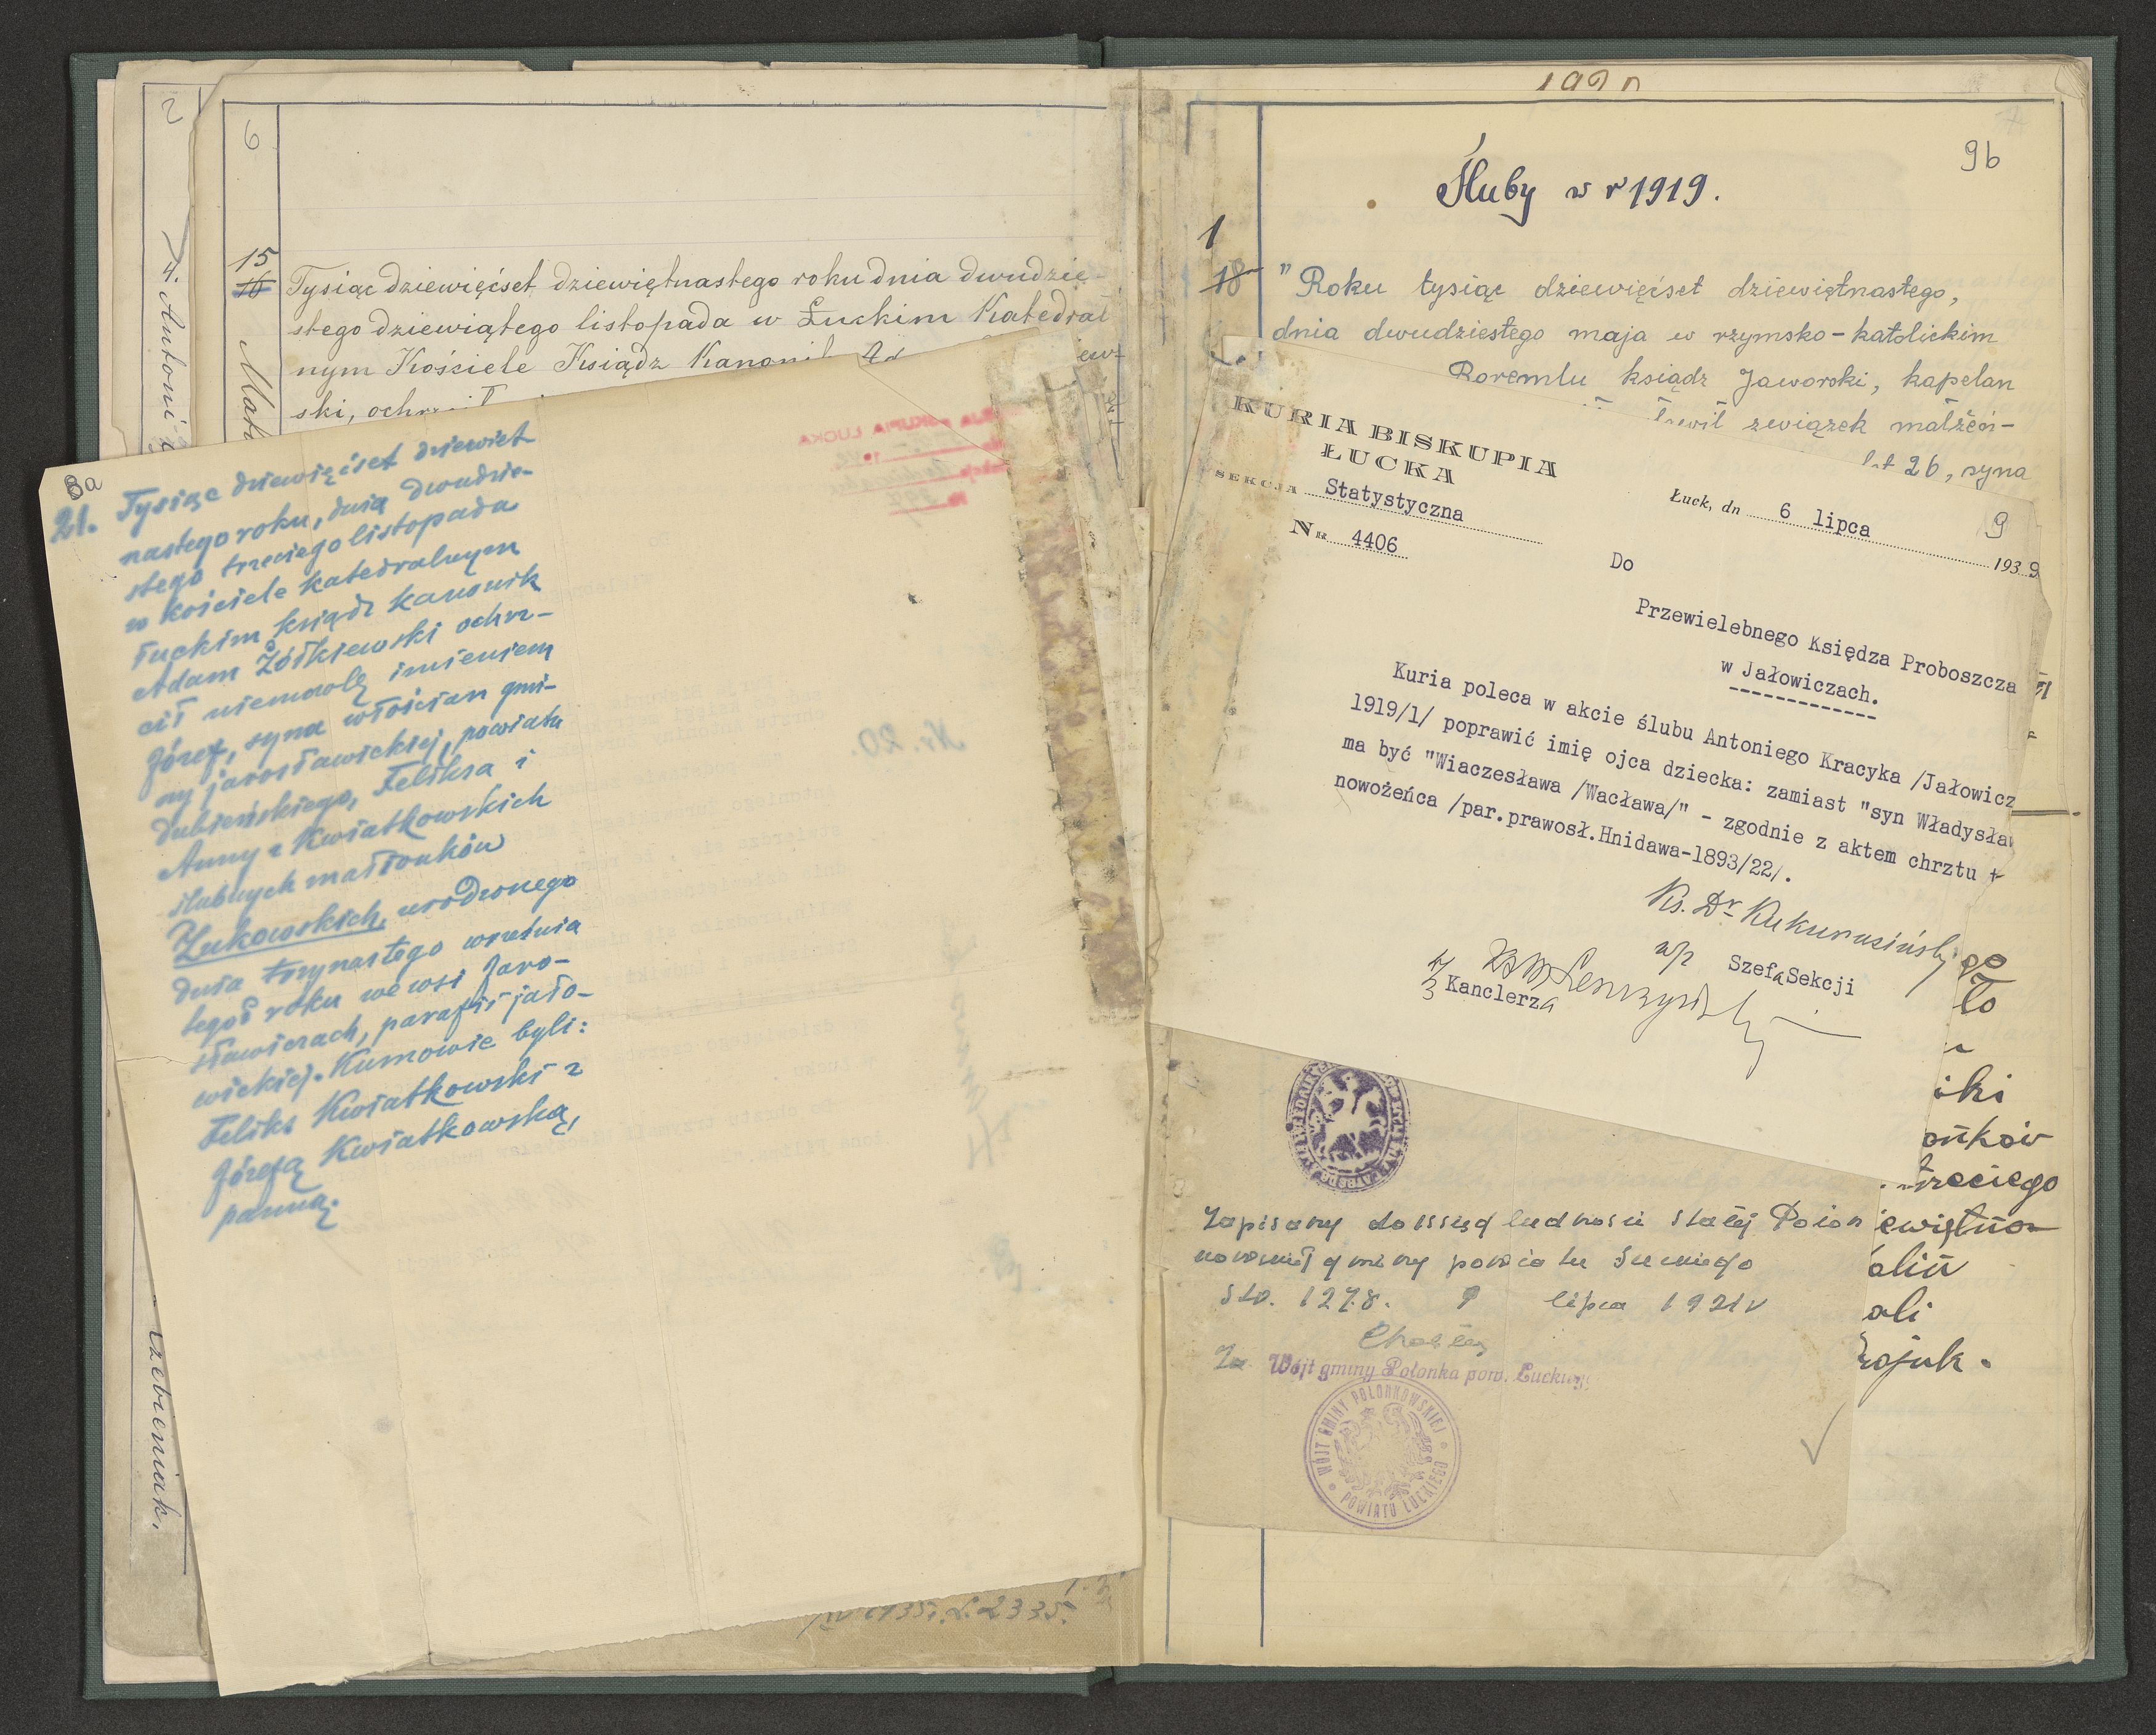 2
4. Antoni
rzebieniak.
6
15
16
Tysiąc dziewięćset dziewiętnastego roku dnia dwudzie-
stego dziewiątego listopada w Łuckim Katedral
nym Kościele Ksiądz Kanonik
ski,
8a
21. Tysiąc dziewięćset dziewięt
nastego roku, dnia dwudzie-
stego trzeciego listopada
w kościele katedralnym
łuckim ksiądz kanonik
Adam Żółkiewski ochrz-
cił niemowlę imieniem
Józef, syna włościan gmi-
ny jarosławickiej, powiatu
dubieńskiego, Feliksa i
Anny z Kwiatkowskich
ślubnych małżonków
Żukowskich, urodzonego
dnia trzynastego września
tegoż roku we wsi Jaro-
sławiczach, parafii jało-
wickiej. Kumowie byli:
Feliks Kwiatkowski z
Józefą Kwiatkowską,
panną.
Nr. 20.
1935r. L. 2335.
1920
9b
Śluby w r 1919.
1
18
"Roku tysiąc dziewięćset dziewiętnastego,
dnia dwudziestego maja w rzymsko-katolickim
Boremlu ksiądz Jaworski, kapelan
związek małżeń-
lat 26, syna
KURIA BISKUPIA
ŁUCKA
SEKCJA Statystyczna
NR 4406
Łuck, dn 6 lipca 1939
9
Do
Przewielebnego Księdza Proboszcza
w Jałowiczach.
Kuria poleca w akcie ślubu Antoniego Kracyka /Jałowicz
1919/1/ poprawić imię ojca dziecka: zamiast "syn Władysła
ma być "Wiaczesława /Wacława/" - zgodnie z aktem chrztu
nowożeńca /par.prawosł.Hnidawa-1893/22/.
Ks. Dr
w/z Szefa Sekcji
w/z Kanclerza
go
ło
iki
onków
trzeciego
ewiętna
alin
ali
ojuk.
Zapisany do ksiąg ludności stałej Polon
gminy powiatu Łuckiego
Str. 1278. 9 lipca 1921 r
Za Wójt gminy Polonka pow. Łuckiego
WÓJT GMINY POLONKOWSKIEJ
POWIATU ŁUCKIEGO